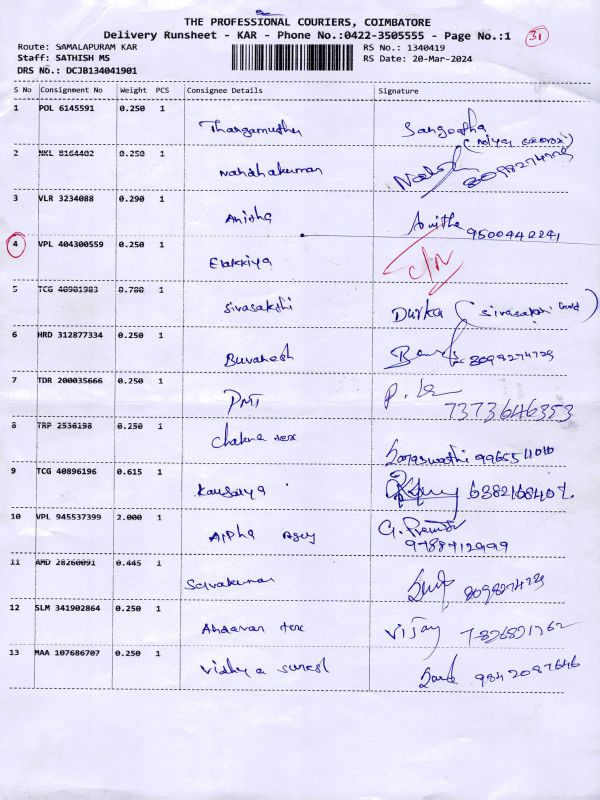 THE PROFESSIONAL COURIERS, COIMBATORE
Delivery Runsheet - KAR - Phone No.:0422-3505555 - Page No.:1
31
Route: SAMALAPURAM KAR
RS No.: 1340419
Staff: SATHISH MS
RS Date: 20-Mar-2024
DRS No.: DCJB134041901
S No Consignment No Weight PCS Consignee Details Signature
1 POL 6145591 0.250 1
Thangamuthu Sangeetha
2 NKL 8164402 0.250 1
Nandhakumar 8098274729
3 VLR 3234088 0.290 1
Anisha Anitha 9500442241
4 VPL 404300559 0.250 1
Elakkiya C/N
5 TCG 40981983 0.780 1
Sivasakshi Durka (Sivasakthi
6 HRD 312877334 0.250 1
Buvanesh 8099274729
7 TDR 200035666 0.250 1
PMT 7373646353
8 TRP 2536198 0.250 1
Chakra tex Saraswathi 9965511010
9 TCG 40896196 0.615 1
Kausalya 6382168407.
10 VPL 945537399 2.000 1
Alpha Agey G. Premdr
9788712999
11 AMD 28260091 0.445 1
Selvakumar 8098274729
12 SLM 341902864 0.250 1
Andavan tex Vijay 7826821762
13 MAA 107686707 0.250 1
Vidhya suresh 9842087646